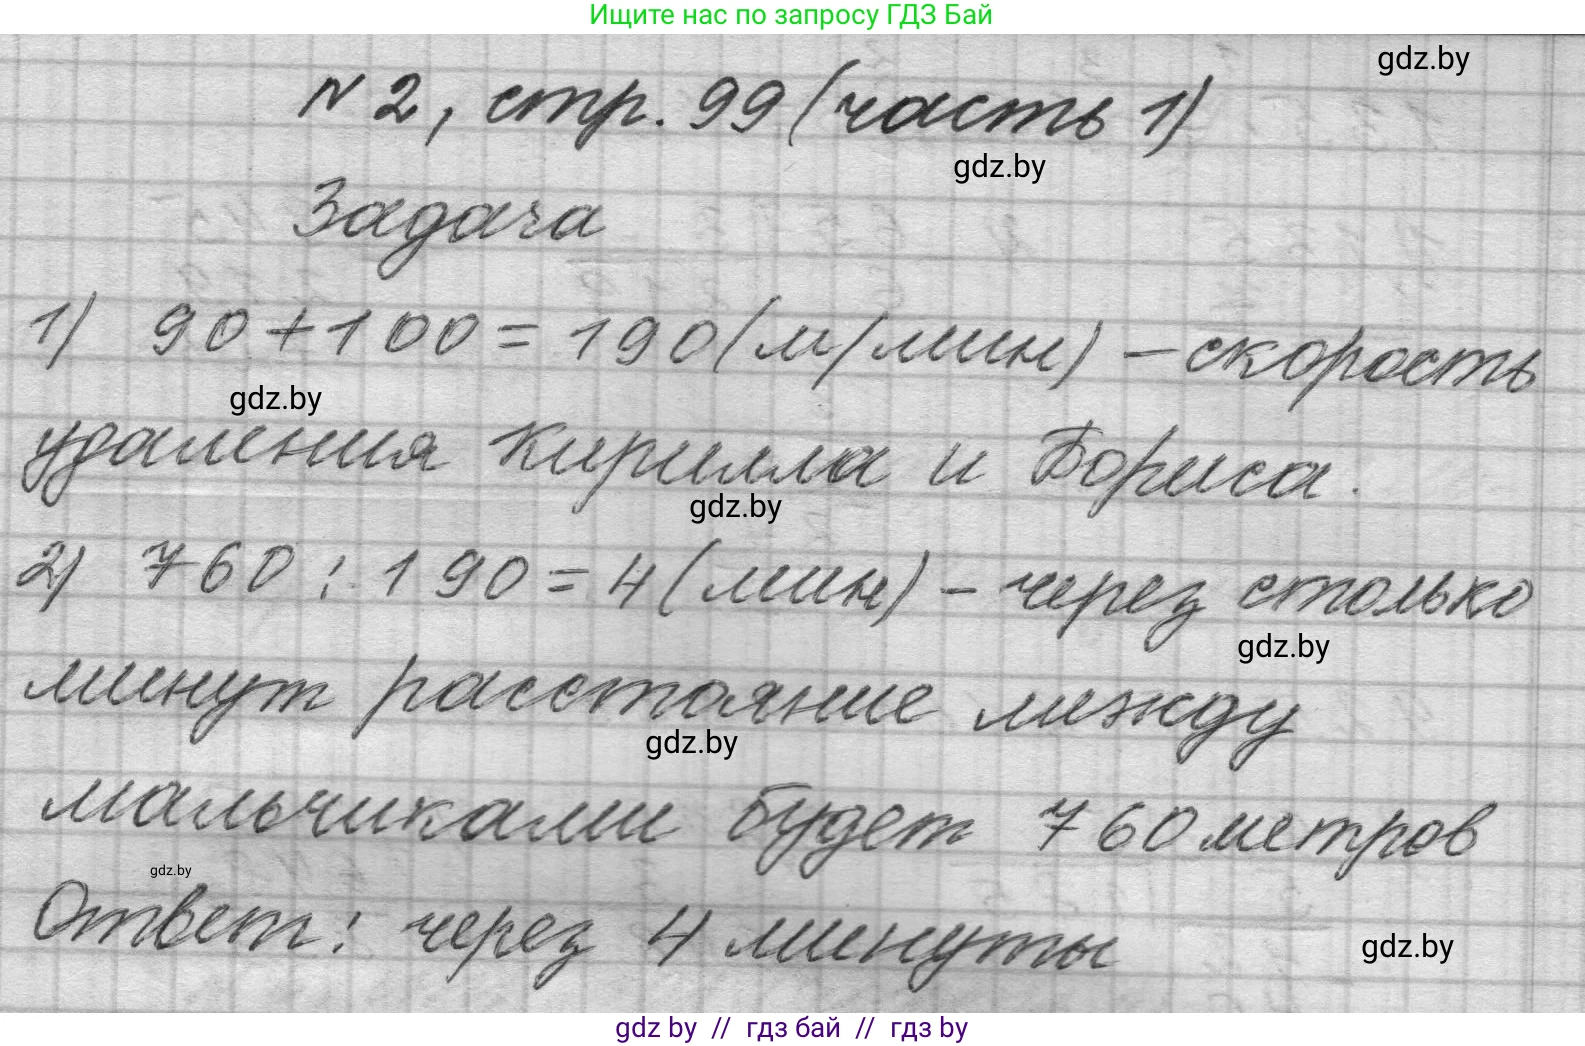 Ищите нас по запросу ГДЗ Бай
gdz.by
N 2, стр. 99 (часть 1)
gdz.by
Задача
1) 90+100=190(м/мин) – скорость
gdz.by
удаления Кирилла и Бориса.
gdz.by
2) 760 : 190=4(мин) – через столько
gdz.by
минут расстояние между
gdz.by
мальчиками будет 760 метров
gdz.by
Ответ: через 4 минуты
gdz.by
gdz by // гдз бай // gdz by